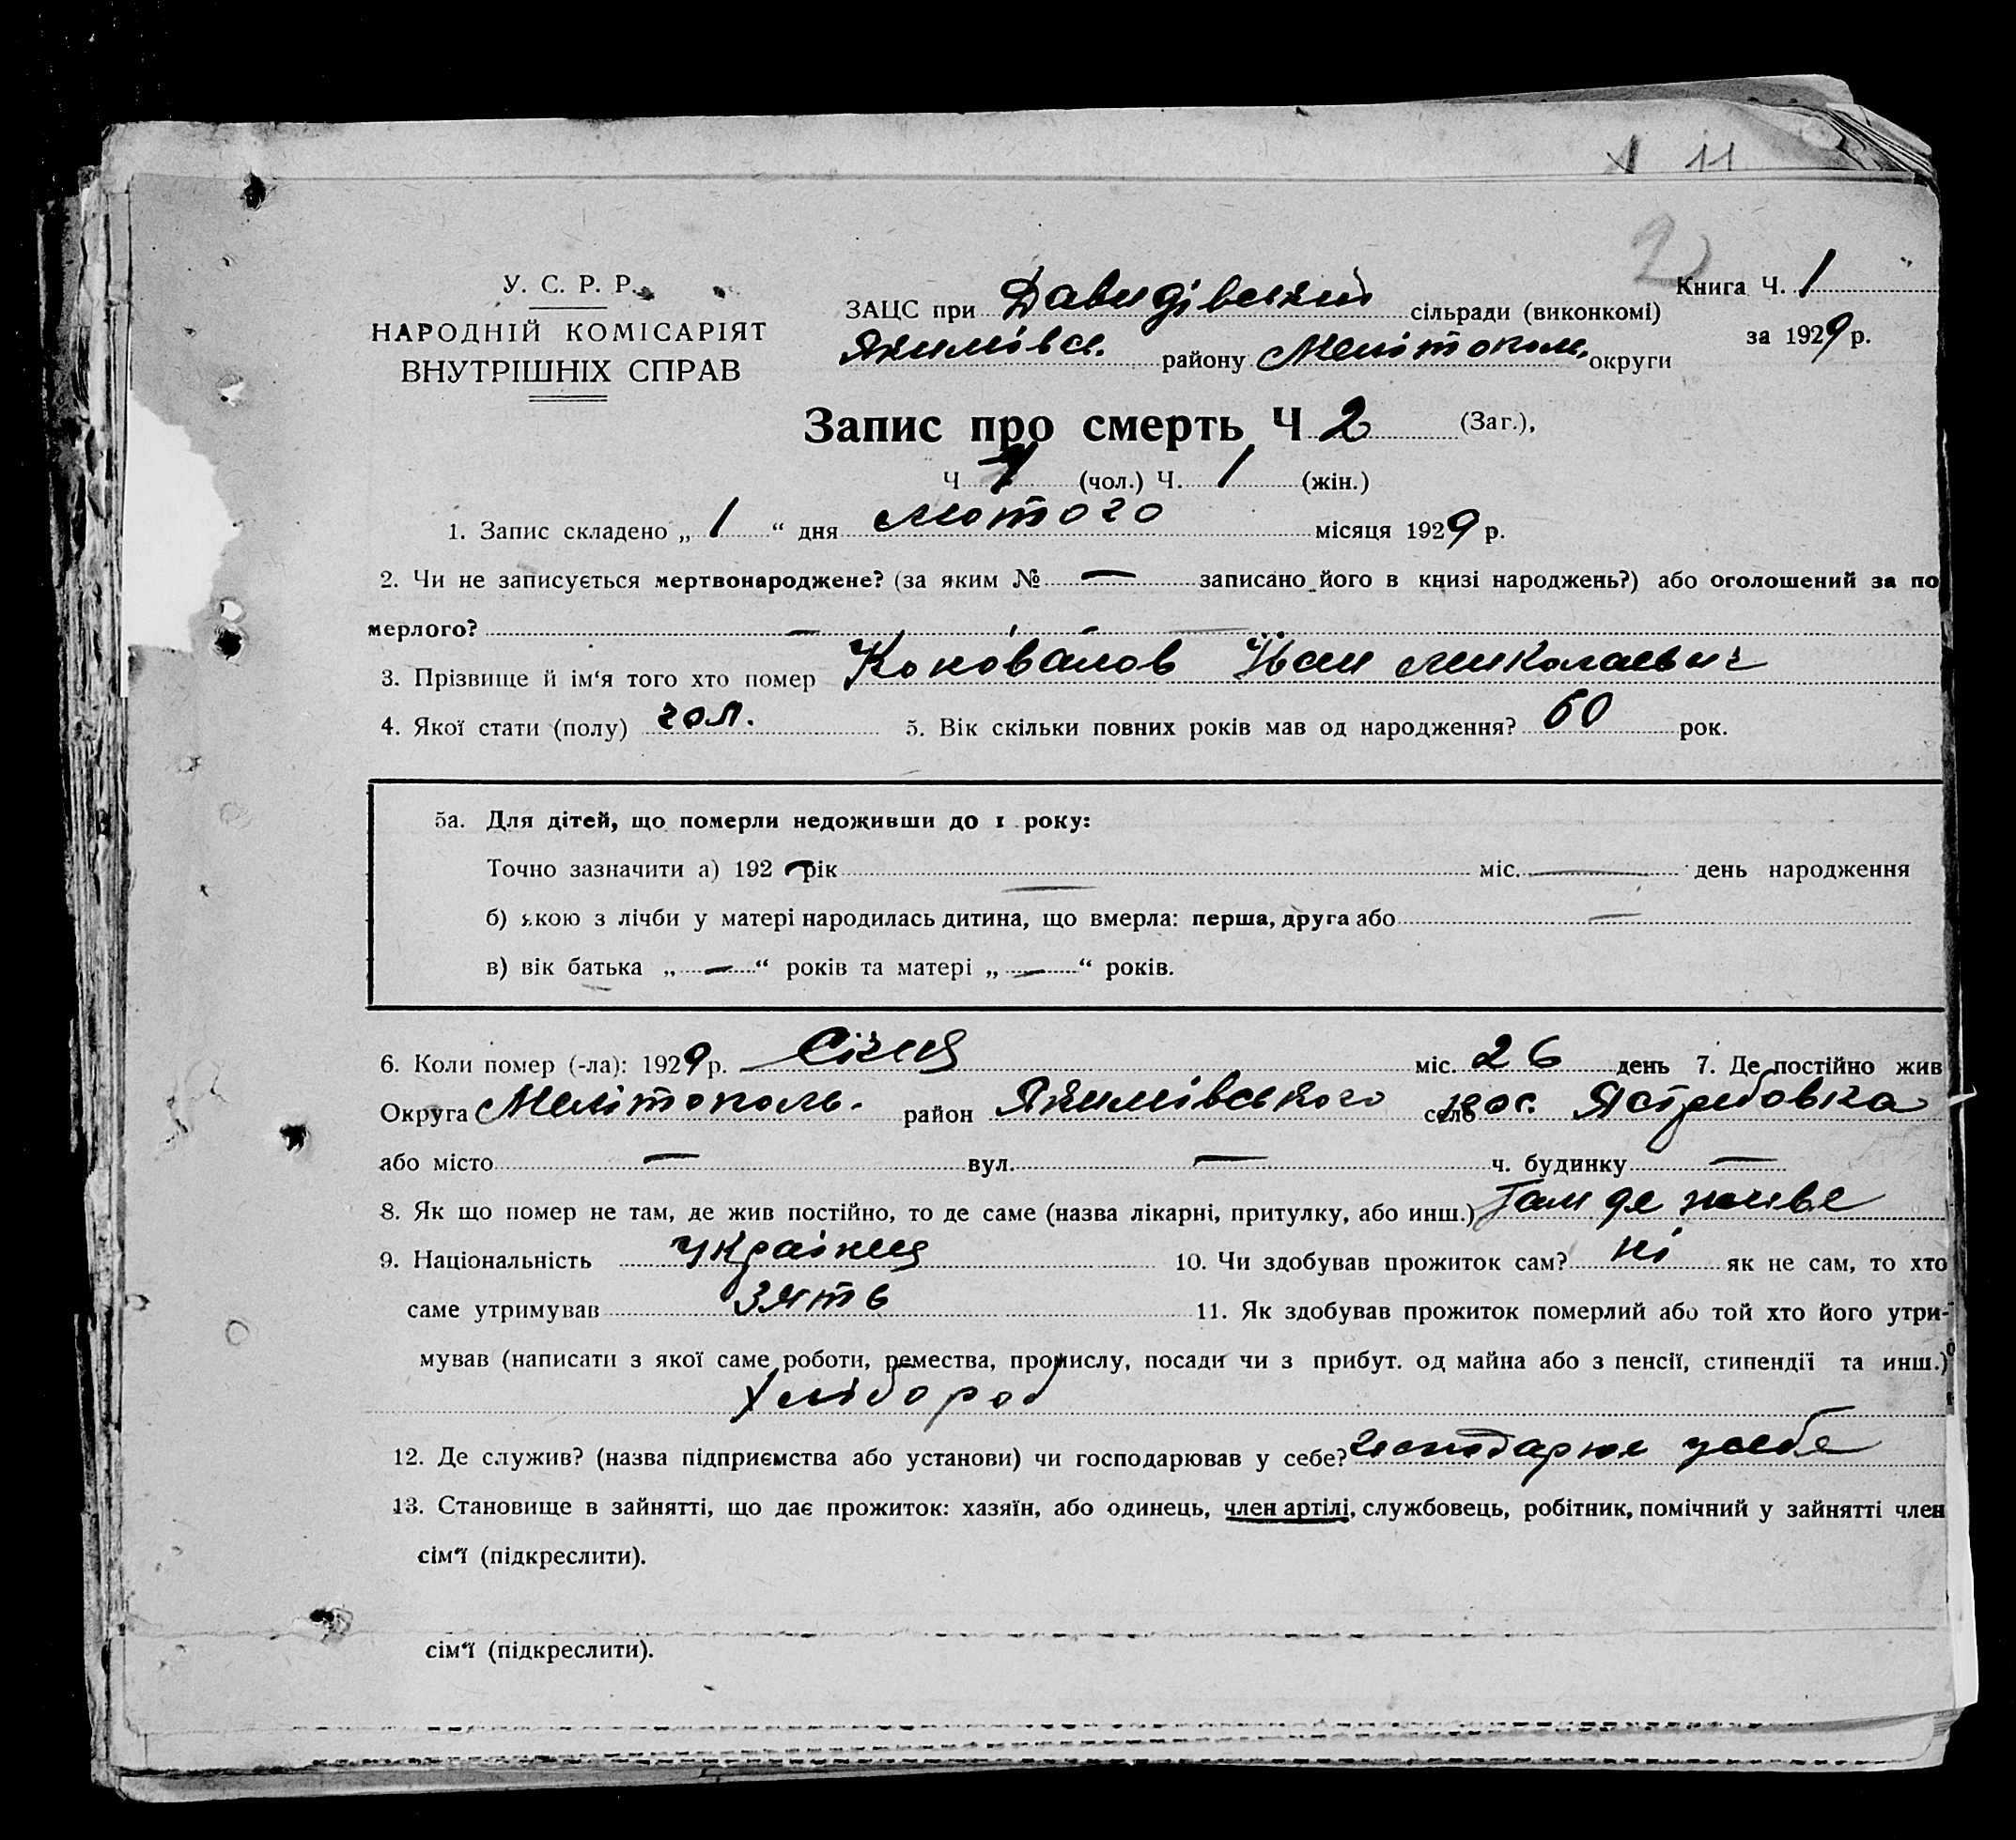 11
2
У. С. Р. Р.
НАРОДНІЙ КОМІСАРІЯТ
ВНУТРІШНІХ СПРАВ
ЗАЦС при Давидівській сільради (виконкомі)
Якимівск. району Мелітополь. округи
Книга Ч. 1
за 1929 р.
Запис про смерть Ч 2 (Заг.),
Ч 1 (чол.) Ч. 1 (жін.)
1. Запис складено „ 1 “ дня лютого місяця 1929 р.
2. Чи не записується мертвонароджене? (за яким № — записано його в книзі народжень?) або оголошений за по
мерлого? —
3. Прізвище й ім‘я того хто помер Коновалов Иван Миколаевич
4. Якої стати (полу) чол. 5. Вік скільки повних років мав од народження? 60 рок.
5а. Для дітей, що померли недоживши до 1 року:
Точно зазначити а) 192 — рік — міс. — день народження
б) якою з лічби у матері народилась дитина, що вмерла: перша, друга або —
в) вік батька „ — “ років та матері „ — “ років.
6. Коли помер (-ла): 1929 р. Січня міс. 26 день 7. Де постійно жив
Округа Мелітополь. район Якимівського село пос. Ястребовка
або місто — вул. — ч. будинку —
8. Як що помер не там, де жив постійно, то де саме (назва лікарні, притулку, або инш.) Там де живе
9. Національність українец 10. Чи здобував прожиток сам? ні як не сам, то хто
саме утримував зять 11. Як здобував прожиток померлий або той хто його утри-
мував (написати з якої саме роботи, ремества, промислу, посади чи з прибут. од майна або з пенсії, стипендії та инш.)
Хлібороб
12. Де служив? (назва підприємства або установи) чи господарював у себе? господарює усебе
13. Становище в зайнятті, що дає прожиток: хазяїн, або одинець, член артілі, службовець, робітник, помічний у зайнятті член
сім‘ї (підкреслити).
сім‘ї (підкреслити).